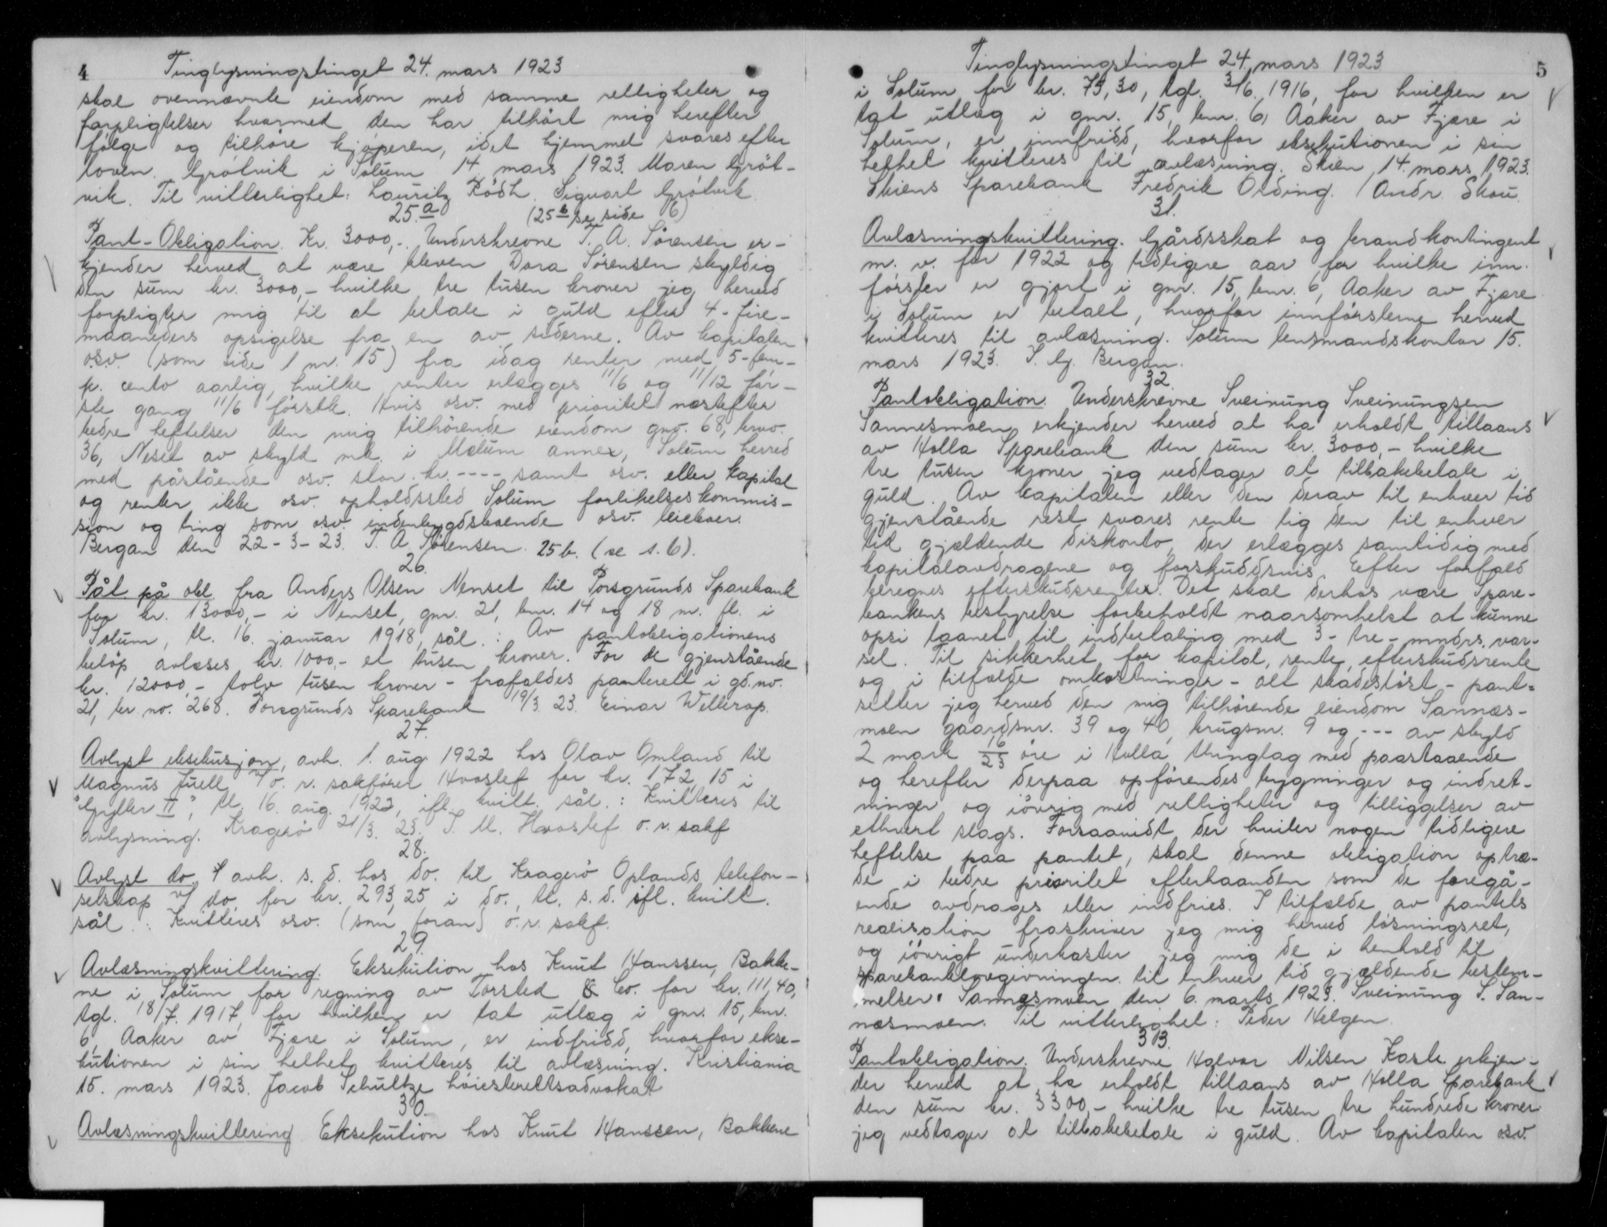 4
Tinglysningstinget 24. mars 1923
skal ovennævnte eiendom med samme rettigheter og
forpligtelser hvormed den har tilhört mig herefter
følge og tilhöre kjøperen, idet hjemmel svares efter
loven. Grötvik i Solum 14. mars 1923. Maren Gröt-
vik. Til vitterlighet: Lauritz Rödh. Sigvart Grötvik.
25.a (25b se side 6)
Pant-Obligation. Kr. 3000,-. Underskrevne T. A. Sörensen er-
kjender herved at være bleven Dora Sörensen skyldig
den sum kr. 3000,- hvilke tre tusen kroner jeg herved
forpligter mig til at betale i guld efter 4-fire-
maaneders opsigelse fra en av siderne. Av kapitalen
osv. (som side 1 nr. 15) fra idag renter med 5-fem-
p. cento aarlig, hvilke renter erlægges 11/6 og 11/12 för-
ste gang 11/6 förstk. Hvis osv. med prioritet næstefter
bedre heftelser den mig tilhörende eiendom gno. 68, brno.
36, Neset av skyld mk. i Mælum annex, Solum herred
med påstående osv. stor kr. ---- samt osv. eller kapital
og renter ikke osv. opholdssted Solum forlikelseskommis-
sion og ting som osv. indenbygdsboende osv.
Bergan den 22-3-23. T. A. Sörensen. 25b. (se s. 6).
26.
Påt. på obl. fra Anders Olsen Nenset til Porsgrunds Sparebank
for kr. 13000,- i Nenset, gnr. 21, bnr. 14 og 18 m. fl. i
Solum, tl. 16. januar 1918, sål.: Av pantobligationens
beløp avlæses kr. 1000,- et tusen kroner. For de gjenstående
kr. 12000,- tolv tusen kroner - frafaldes panterett i gd. no.
21, br. no. 268. Porsgrunds Sparebank 19/3 23. Einar Wellerop.
27.
Avlyst eksekusjon, avh. 1. aug. 1922 hos Olav Omland til
Magnus Juell v/ o. r. sakfører Hvoslef for kr. 172,15 i
"Grytter II", tl. 16. aug. 1922, ifl. kvitt. sål.: Kvitteres til
avlysning. Kragerö 21/3. 23. S. M. Hvoslef o. r. sakf
28.
Avlyst do / avh. s. d. hos do. til Kragerö Oplands telefon-
selskap v/ do. for kr. 293,25 i do., tl. s. d. ifl. kvitt.
sål.: Kvitteres osv. (som foran) o. r. sakf.
29.
Avlæsningskvittering. Eksekution hos Knut Hanssen, Bakke-
ne i Solum for regning av Torsted & Co. for kr. 111,40,
tgl. 18/7. 1917, for hvilken er tat utlæg i gnr. 15, bnr.
6, Aaker av Fjære i Solum, er indfridd, hvorfor ekse-
kutionen i sin helhet kvitteres til avlæsning. Kristiania
15. mars 1923. Jacob Schultze höiesterettsadvokat
30.
Avlæsningskvittering. Eksekution hos Knut Hanssen, Bakkene
5
Tinglysningstinget 24. mars 1923
i Solum for kr. 73,30, tgl. 3/6. 1916, for hvilken er
tat utlæg i gnr. 15, bnr. 6, Aaker av Fjære i
Solum, er innfridd, hvorfor eksekutionen i sin
helhet kvitteres til avlæsning. Skien 14. mars 1923.
Skiens Sparebank Fredrik Ording. / Andr. Skau.
31.
Avlæsningskvittering. Gårdsskat og brandkontingent
m. v. for 1922 og tidligere aar for hvilke inn-
førsler er gjort i gnr. 15, bnr. 6, Aaker av Fjære
i Solum er betalt, hvorfor innförslerne herved
kvitteres til avlæsning. Solum lensmandskontor 15.
mars 1923. S. G. Bergan.
32.
Pantobligation. Underskrevne Sveinung Sveinungsen
Sannesmoen erkjender herved at ha erholdt tillaans
av Holla Sparebank den sum kr. 3000,- hvilke
tre tusen kroner jeg vedtager at tilbakebetale i
guld. Av kapitalen eller den derav til enhver tid
gjenstående rest svares rente lig den til enhver
tid gjældende diskonto, der erlægges samtidig med
kapitalavdragene og forskuddsvis. Efter forfald
beregnes efterskudsrenter. Det skal derhos være Spare-
bankens bestyrelse forbeholdt naarsomhelst at kunne
opsi laanet til indbetaling med 3-tre-mndrs. var-
sel. Til sikkerhet for kapital, rente, efterskudsrente
og i tilfælde omkostninger - alt skadeslöst - pant-
setter jeg herved den mig tilhørende eiendom Sannæs-
moen gaardsnr. 39 og 40, brugsnr. 9 og --- av skyld
2 mark 16/25 öre i Holla thinglag med paastaaende
og herefter derpaa opförendes bygninger og indret-
ninger og iövrig med rettigheter og tilliggelser av
ethvert slags. Forsaavidt der hviler nogen tidligere
heftelse paa pantet, skal denne obligation optræ-
de i bedre prioritet efterhaanden som de foregå-
ende avdrages eller indfries. I tilfælde av pantets
realisation fraskriver jeg mig herved lösningsret,
og iövrigt underkaster jeg mig de i henhold til
sparebanklovgivningen til enhver tid gjældende bestem-
melser. Sannesmoen den 6. marts 1923. Sveinung S. San-
næsmoen. Til vitterlighet: Peder Helgen.
33.
Pantobligation. Underskrevne Halvor Nilsen Kaste erkjen-
der herved at ha erholdt tillaans av Holla Sparebank
den sum kr. 3300,- hvilke tre tusen tre hundrede kroner
jeg vedtager at tilbakebetale i guld. Av kapitalen osv.